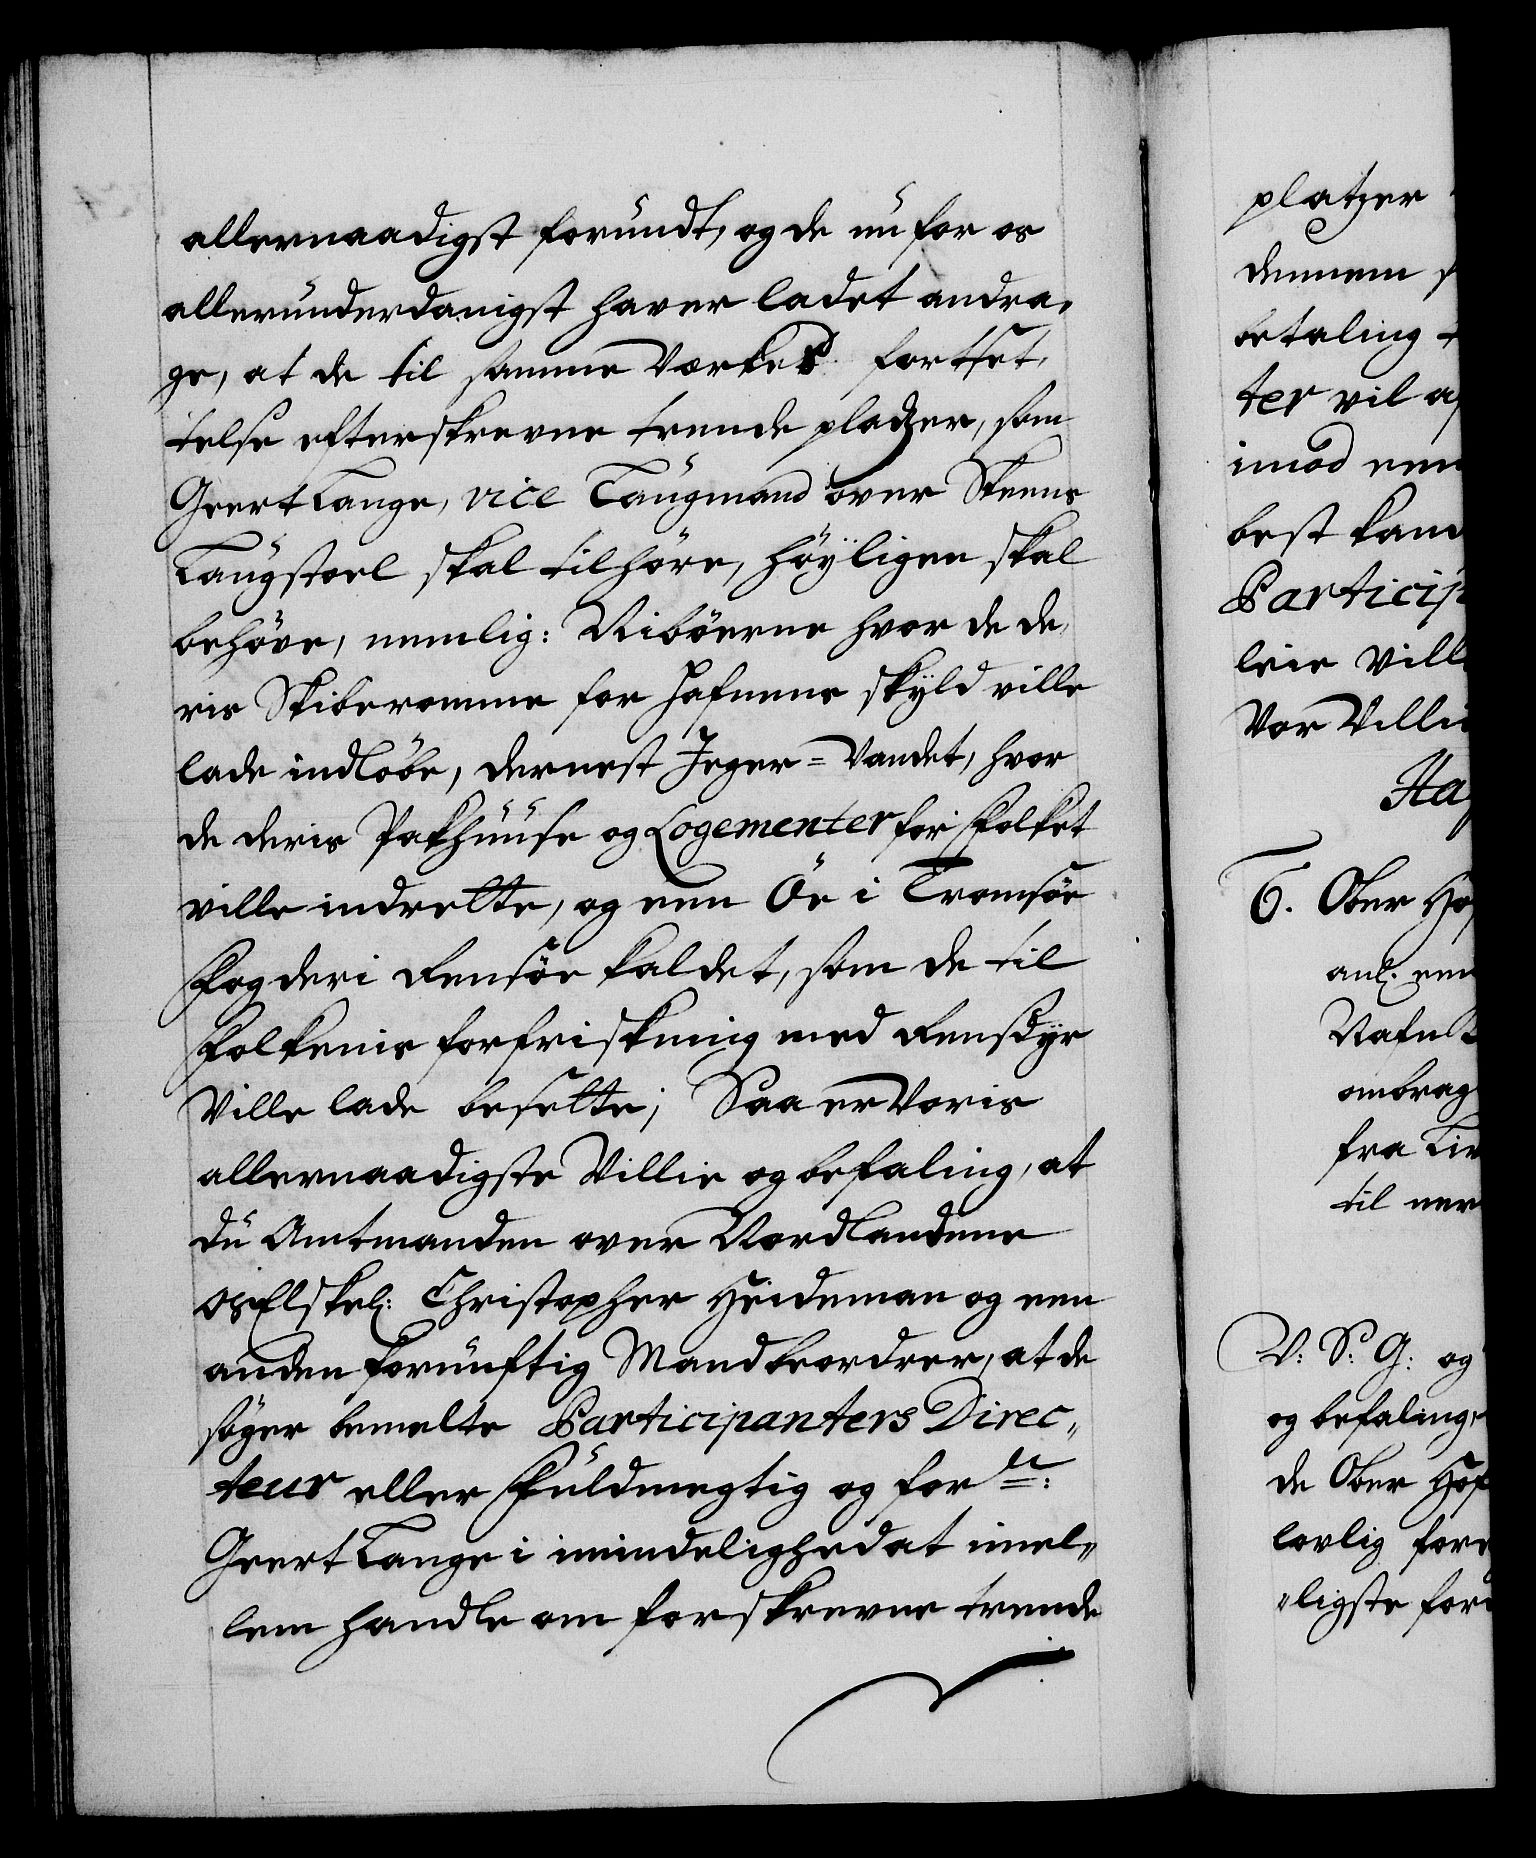 allernaadigst forundt, og de nu for os
allerunderdanigst haver ladet andra,
ge, at de til samme Verkes fortset,
telse efterskrevne trende pladzer, som
Geert Lange, vice Laugmand over Steens
Laugstoel skal tilhöre, höyligen skal
behöve, nemlig: Riböerne hvor de de,
ris Skiberomme for Hafnens skyld ville
lade indlöbe, dernest Jeger=Vandet, hvor
de deris Pakhuuse og Logementer for Folket
ville indrette, og een Öe i Tromsöe
Fogderi Rensöe kaldet, som de til
Folkenis forfriskning med Rensdyr
Ville lade besette; Saa er Voris
allernaadigste Villie og befaling, at
du Amtmanden over Nordlandene
os Elskel: Christopher Heideman og een
anden fornuftig Mand beordrer, at de
söger bemelte Participanters Direc„
teur eller Fuldmegtig og for^ne:
Geert Lange i mindelighed at imel„
lem handle om forskrevne trende
platzer
dennem
betaling
ter vil
imod een
best kand
Particip
leie Vill
Vor Villi
Haf
6. Ober Ho
anl. een
Nafnl
ombrag
fra Liv
til ner
V: S: G: og
og befaling,
de Ober Hof
lovlig for
„ligste for